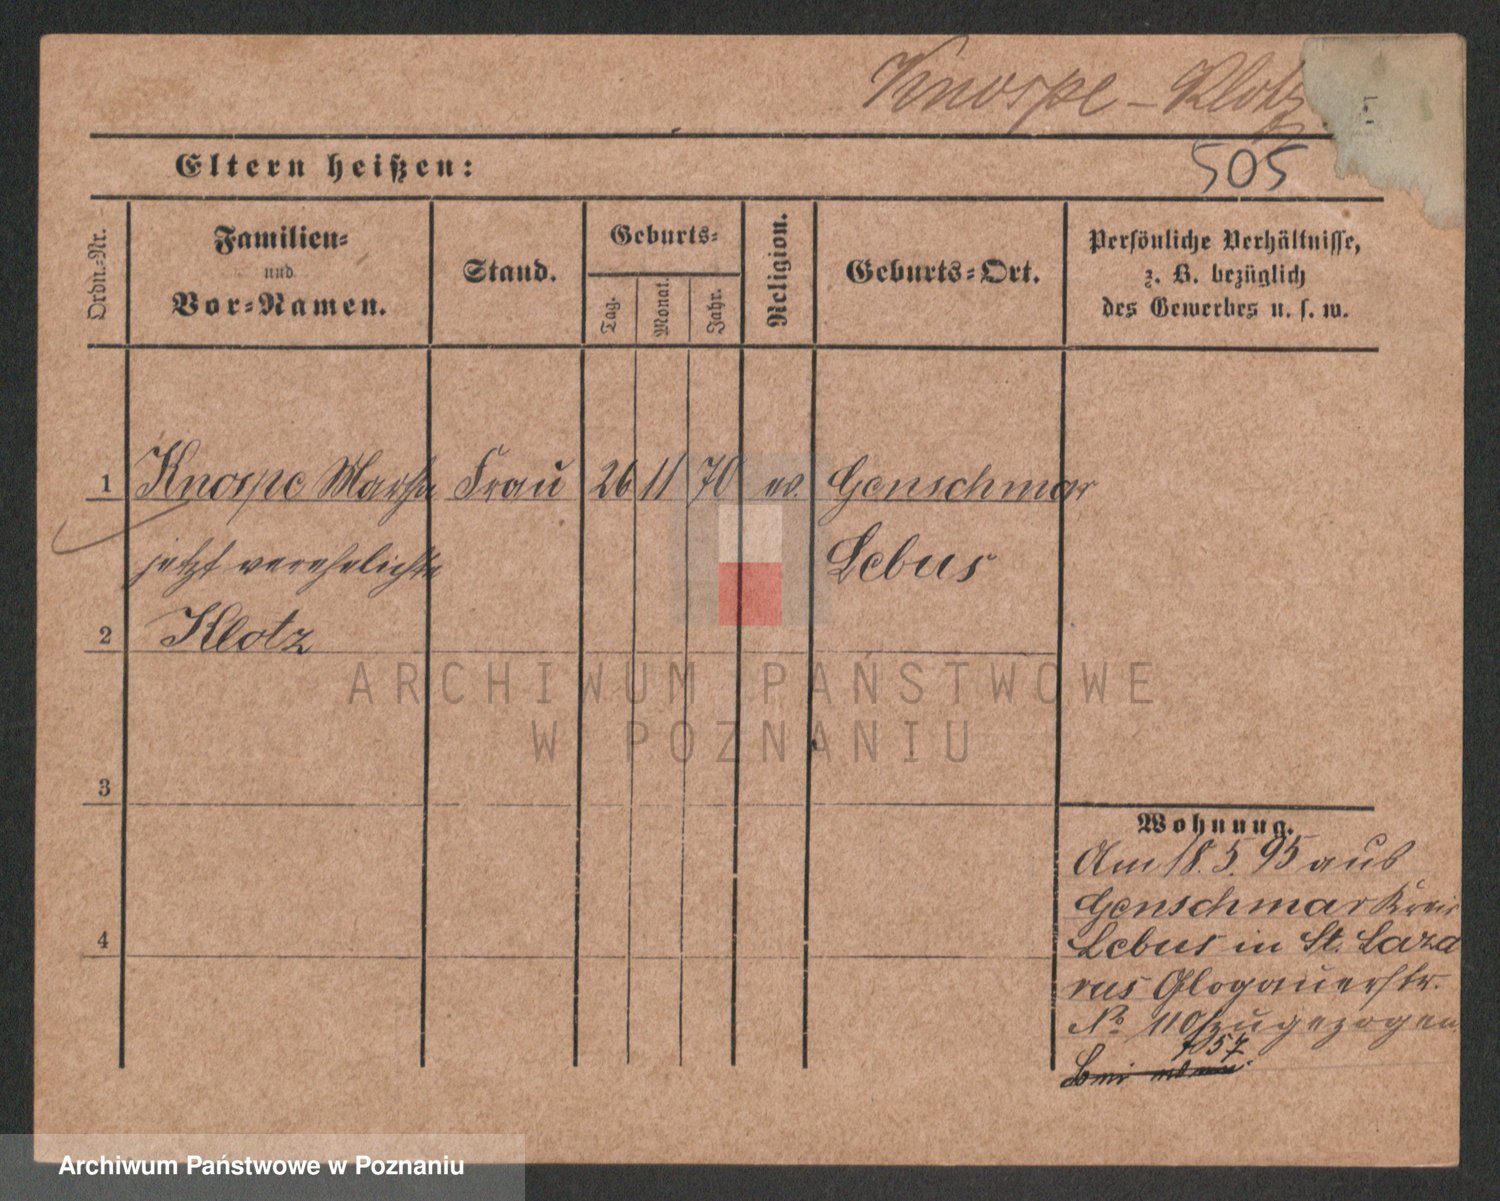 Knospe – Klotz
505
Eltern heißen:
Ordn.-Nr.
Familien-
und
Vor-Namen.
Stand.
Geburts-
Tag.
Monat.
Jahr.
Religion.
Geburts-Ort.
Persönliche Verhältnisse,
z. B. bezüglich
des Gewerbes u. s. w.
1 Knospe Martha Frau 26 11 70 ev. Genschmar
jetzt verehelichte Lebus
2 Klotz
3
4
Wohnung.
Am 18. 5. 95 aus
Genschmar Kreis
Lebus in St. Laza
rus Glogauerstr.
No 110 zugezogen
57
ARCHIWUM PAŃSTWOWE
W POZNANIU
Archiwum Państwowe w Poznaniu